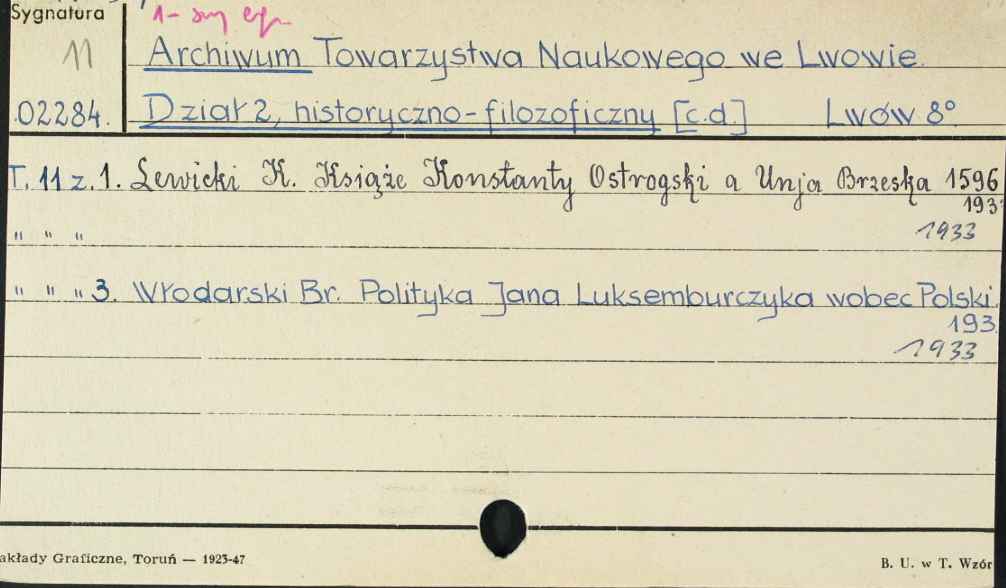 Sygnatura
11
Archiwum Towarzystwa Naukowego we Lwowie.
02284. Dział 2, historyczno-filozoficzny [c.d.] Lwów 8°.
T. 11 z. 1. Lewicki K. Książe Konstanty Ostrogski a Unja Brzeska 1596
193
" " " 1933
" " " 3. Włodarski Br. Polityka Jana Luksemburczyka wobec Polski.
193
1933
akłady Graficzne, Toruń — 1923-47 B. U. w T. Wzór